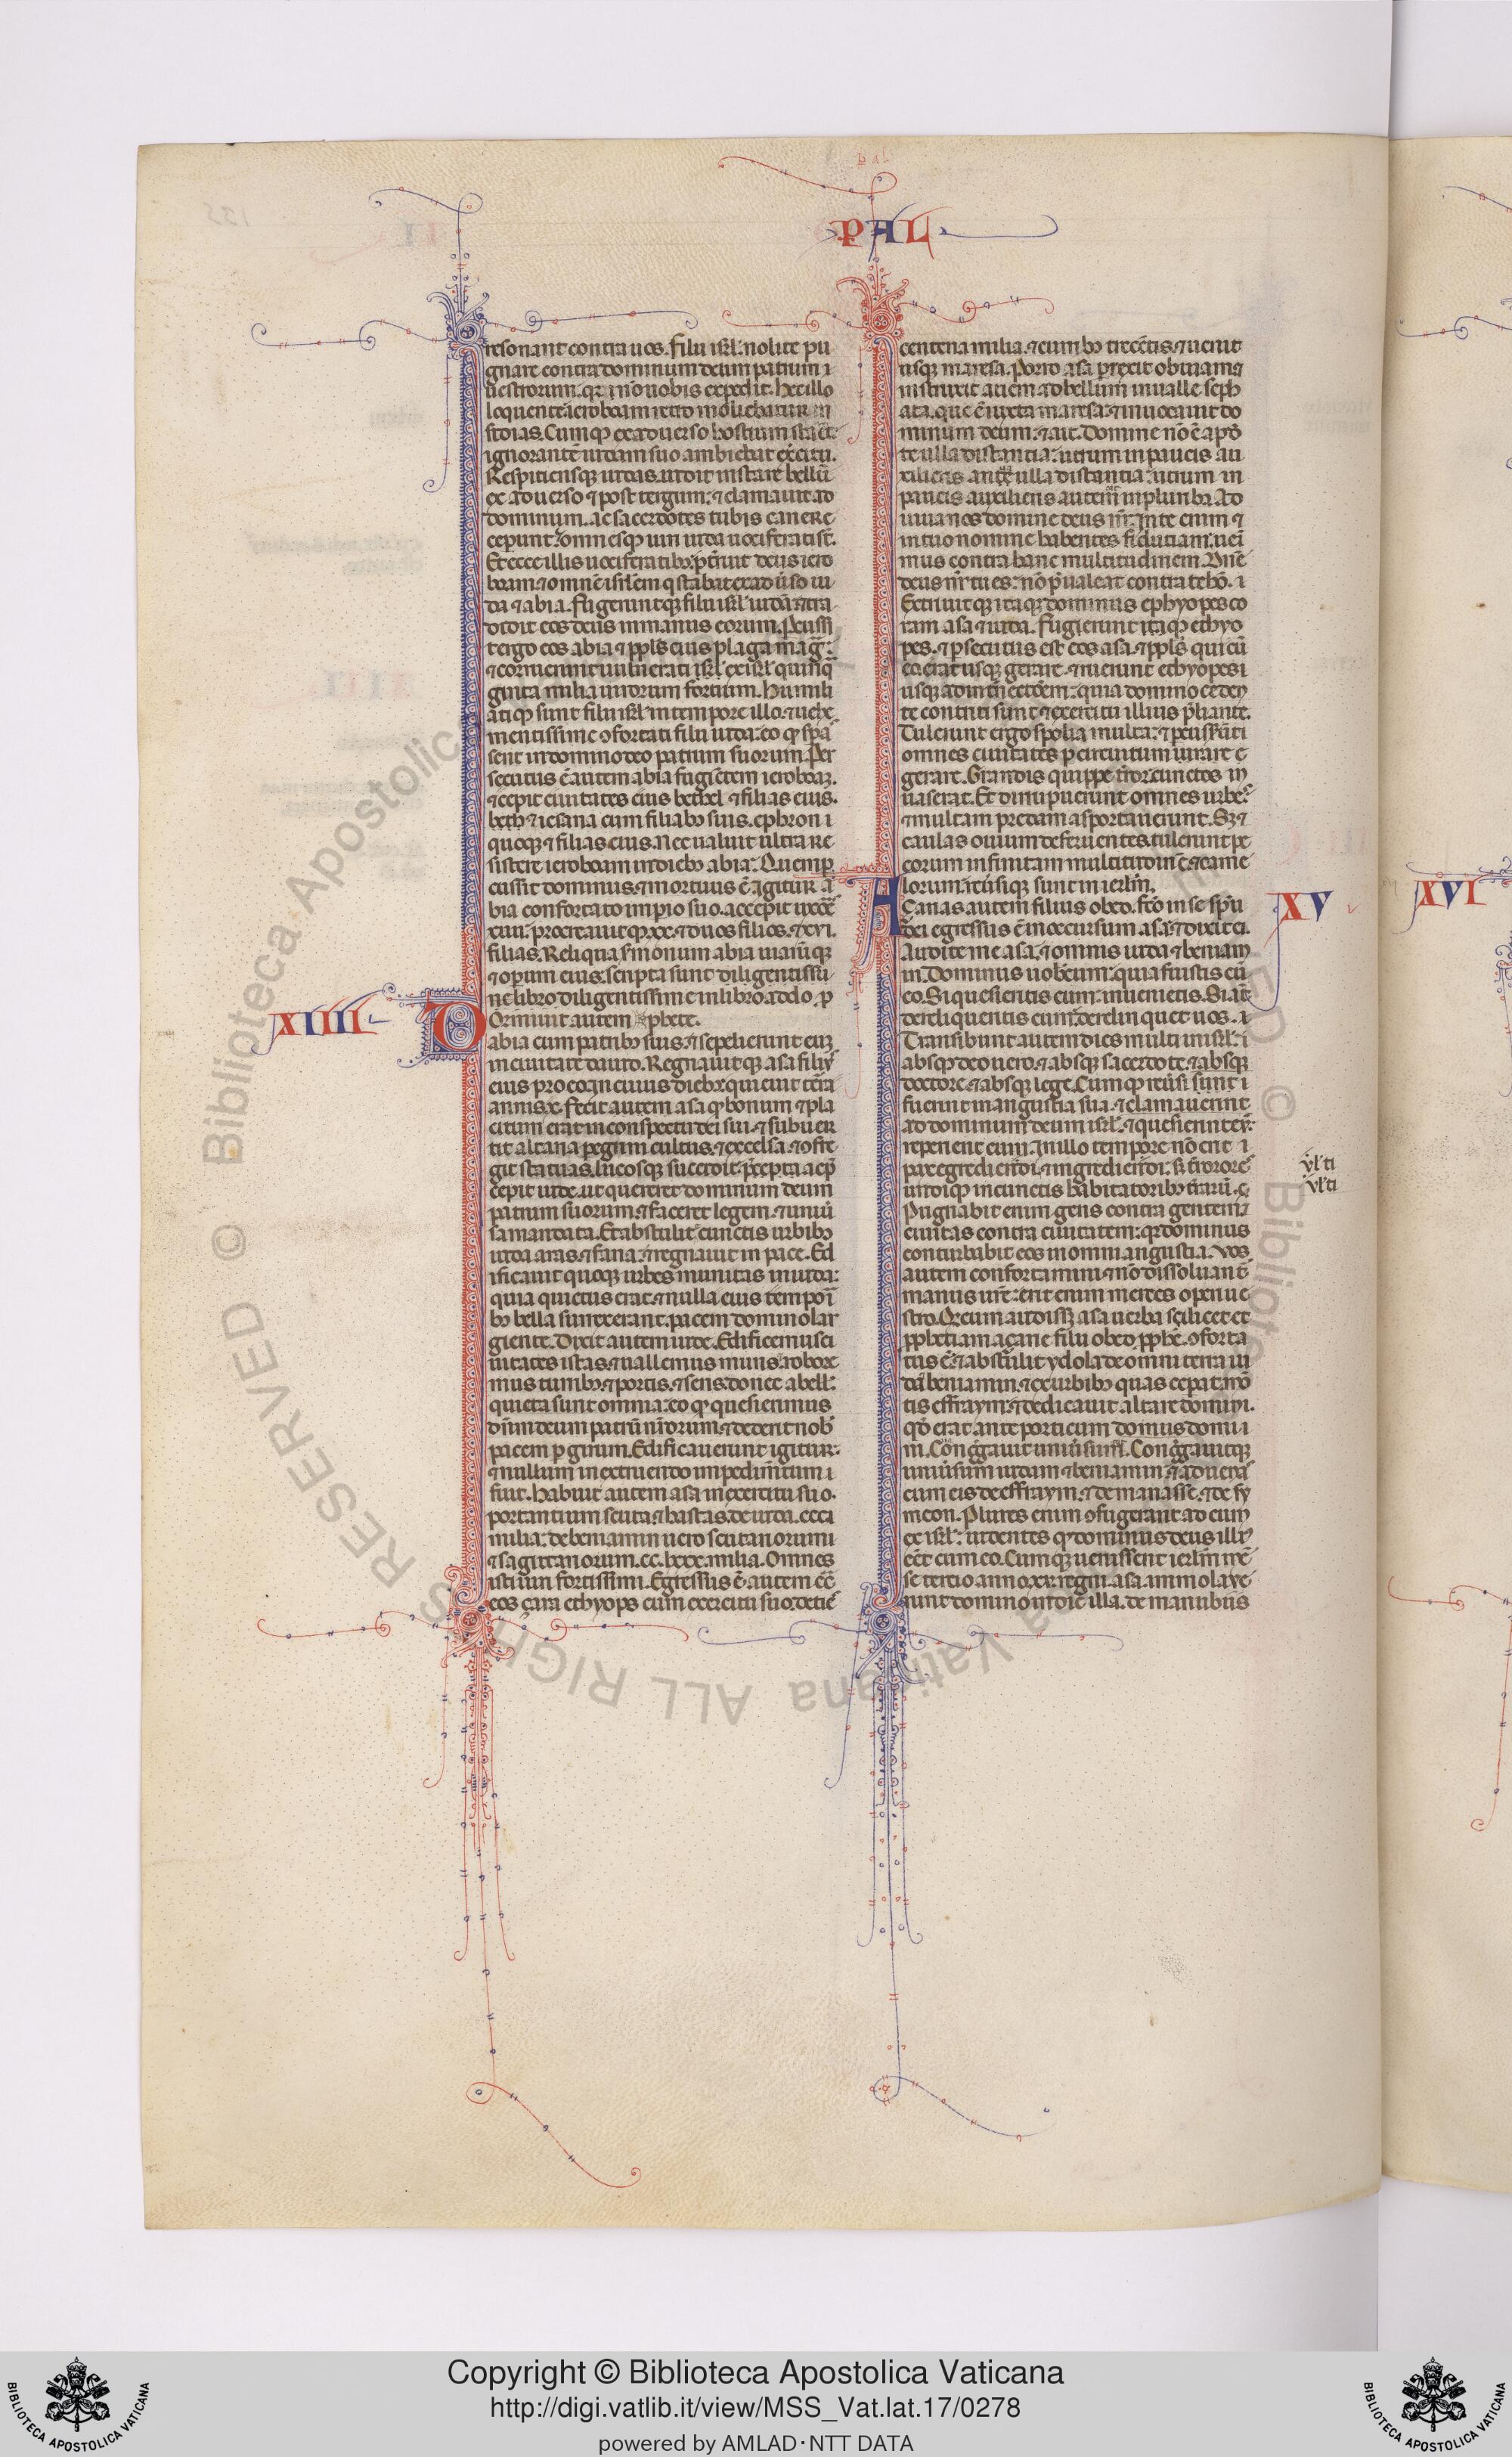 PAL
resonant contra uos. Filii isrl' nolite pu
gnare contra dominum deum patrum i
uestrorum. qr nō uobis expedit. Hec illo
loquente ieroboam retro moliebatur in
sidias. Cumq; ex aduerso hostium staret
ignorantē iudam suo ambiebat excitu.
Respiciensq; iudas uidit instare bellū
ex aduerso ⁊ post tergum: ⁊ clamauit ad
dominum. ac sacerdotes tubis canere
ceperunt. omnesq; uiri iuda uociferati sūt.
Et ecce illis uociferātibȝ ꝑt̄ruit deus iero
boam. ⁊ omnē isrl'em q stabat ex adūso iu
da ⁊ abia. Fugeruntq; filii isrl' iudā. ⁊ tra
didit eos deus in manus eorum. Percussit
ergo eos abia ⁊ ppl's eius plaga magͣ:
⁊ corruerunt uulnerati isrl' ex isrl' quinq̄
ginta milia uirorum fortium. Humili
atiq; sunt filii isrl' in tempore illo. ⁊ uehe
mentissime ꝯfortati filii iuda: eo qͻ spa
sent in domino deo patrum suorum. Per
secutus ē autem abia fugientem ieroboaȝ.
⁊ cepit ciuitates eius bethel ⁊ filias eius.
⁊ iesana cum filiabȝ suis. ephron i
quoq; ⁊ filias eius. Nec ualuit ultra re
sistere ieroboam in diebȝ abia: Quem ꝑ
cussit dominus. ⁊ mortuus ē. Igitur a
bia confortato imperio suo. accepit uxōēs
xiiii. procreauitq; xx. ⁊ duos filios. ⁊ xvi.
filias. Reliqua s̄monum abia uiarūq;
⁊ operum eius. scripta sunt diligentissi
me libro diligentissime in libro addo. ꝓ
XIIII
Dormiuit autem phete.
abia cum patribȝ suis. ⁊ sepelierunt euȝ
in ciuitate dauid. Regnauitq; asa filiꝰ
eius pro eo. In cuius diebȝ quieuit tēra
annis. x. Fecit autem asa qͻ bonum ⁊ pla
citum erat in conspectu dei sui. ⁊ subuer
tit altaria peregrini cultus. ⁊ excelsa. ⁊ ꝯfre
git statuas. lucosq; succidit.
cepit iude. ut quereret dominum deum
patrum suorum. ⁊ faceret legem. ⁊ uniū
sa mandata. Et abstulit cunctis urbibȝ
iuda aras. ⁊ fana: ⁊ regnauit in pace. Ed
ificauit quoq; urbes munitas in iuda:
quia quietus erat. ⁊ nulla eius tempori
bȝ bella surrexerant. pacem domino lar
giente. Dixit autem iude. Edificemus ci
uitates istas. ⁊ uallemus muris. ⁊ robore
mus turribȝ. ⁊ portis. ⁊ seris. donec a bell'
quieta sunt omnia: eo qͻ quesierimus
dn̄m deum patrū n̄rorum. ⁊ dederit nob'
pacem ꝑ girum. Edificauerunt igitur.
⁊ nullum in extruendo impedimtum i
fuit. Habuit autem asa in exercitu suo.
portantium scuta. ⁊ hastas. de iuda. ccca
milia: de beniamin uero scutariorum
⁊ sagittariorum. cc. lxxx. milia. Omnes
isti uiri fortissimi. Egressus ē autem cō
eos çara ethyops cum exercitu suo. decie
centena milia. ⁊ curribȝ trecētis. ⁊ uenit
usq; maresa. Porro asa prexit obuiam ⁊
instruxit aciem ad bellum in ualle seph
ata. que ē iuxta maresa: ⁊ inuocauit do
minum deum. ⁊ ait. Domine nō ē apd
te ulla distantia: utrum in paucis au
xilieris an ulla distantia: utrum in
paucis auxilieris autem in pluribȝ. Ad
iuua nos domine deus nr̄. In te enim ⁊
in tuo nomine habentes fiduciam: ueni
mus contra hanc multitudinem. Dn̄e
deus nr̄ tu es: nō p̄ualeat contra te hō. i
Exterruitq; itaq; dominus ethyopes co
ram asa ⁊ iuda. Fugieruntitaq; ethyo
pes. ⁊ ꝑsecutus est eos asa. ⁊ ppl's qui cū
eo erat usq; gerare. ⁊ ruerunt ethyopes i
usq; ad internetionem: quia domino ceden
te contriti sunt ⁊ exercitu illius p̄liante.
Tulerunt ergo spolia multa: ⁊ ꝑcusserūt
omnes ciuitates ꝑ circuitum
gerare. Grandis quippe terror cunctos in
uaserat. Et diripuerunt omnes urbes
⁊ multam predam asportauerunt. Sȝ ⁊
caulas ouium destruentes. tulerunt pe
corum infinitam multitudinē. ⁊ came
lorum. reūsiq; sunt in ierl'm.
XV
Acarias autem filius obed. fc̄o in se sp̄u
dei egressus ē in occursum asa. ⁊ dixit ei.
Audite me asa. ⁊ omnis iuda ⁊ beniam
in. Dominus uobcum: quia fuistis cū
eo. Si quesieritis eum: inuenietis. Si aūt
dereliqueritis eum: derelinquet uos. i
Transibunt autem dies multi in isrl'. i
absq; deo uero. ⁊ absq; sacerdote. ⁊ absq;
doctore. ⁊ absq; lege. Cumq; reūsi sunt i
fuerint in angustia sua. ⁊ clamauerint
ad dominum deum isrl'. ⁊ quesierint eū:
reperient eum. In illo tempore nō erit i
pax egredienti. ⁊ ingredienti. s; t̄rorore
undiq; in cunctis habitatoribȝ t̄rarū. c
Pugnabit enim gens contra gentem. ⁊
ciuitas contra ciuitatem: qr dominus
conturbabit eos in omni angustia. Vos
autem confortamini. ⁊ nō dissoluant
manus ur̄e: erit enim merces operi ue
stro. Qd cum audissȝ asa uerba scilicet et
ꝓphetiam açarie filii obed ꝓphē. ꝯforta
tus ē. ⁊ abstulit ydola de omni terra iu
da. ⁊ beniamin. ⁊ ex urbibȝ quas cepat. mō
tis effraym: ⁊ dedicauit altare domini.
qd̄ erat ante porticum domus domi i
ni. Con̄g̃gauit uniūsum. Cong̃gauitq;
uniūsum iudam ⁊ beniamin. ⁊ aduenas
cum eis de effraym. ⁊ de manasse. ⁊ de sy
meon. Plures enim ꝯfugerant ad eum
ex isrl': uidentes qͻ dominus deus illiꝰ
eēt cum eo. Cumq; uenissent ierl'm mē
se tercio anno. xv. regni. asa. immolaue
runt domino in die illa. de manubiis
vl'ti
vl'ti
XVI
Copyright © Biblioteca Apostolica Vaticana
http://digi.vatlib.it/view/MSS_Vat.lat.17/0278
powered by AMLAD · NTT DATA
BIBLIOTECA APOSTOLICA VATICANA
BIBLIOTECA APOSTOLICA VATICANA
© Biblioteca Apostolica Vaticana ALL RIGHTS RESERVED